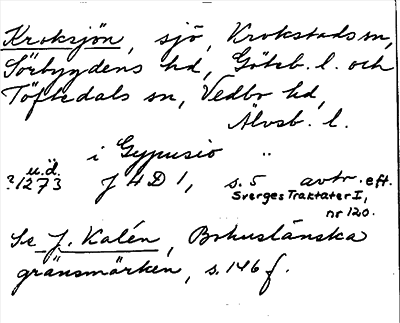 Kroksjön, sjö, Krokstads sn,
Sörbygdens hd, Göteb. l. och
Töftedals sn, Vedbo hd,
Älvsb. l.
i Gypusio "
u.d.
?1273 J 4 D 1, s. 5 avtr. eft.
Sverges Traktater I,
nr 120.
Se J. Kalén, Bohuslänska
gränsmärken, s. 146 f.